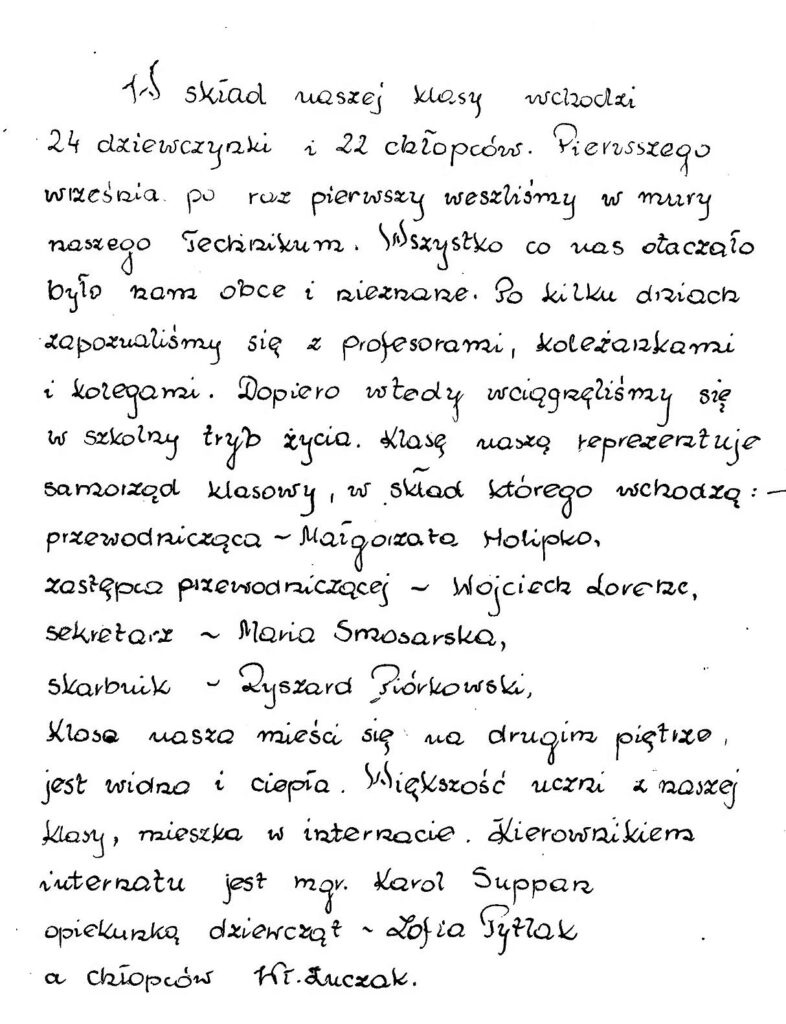 W skład naszej klasy wchodzi
24 dziewczynki i 22 chłopców. Pierwszego
września po raz pierwszy weszliśmy w mury
naszego Technikum. Wszystko co nas otaczało
było nam obce i nieznane. Po kilku dniach
zapoznaliśmy się z profesorami, koleżankami
i kolegami. Dopiero wtedy wciągnęliśmy się
w szkolny tryb życia. Klasę naszą reprezentuje
samorząd klasowy, w skład którego wchodzą: -
przewodnicząca ~ Małgorzata Holipko,
zastępca przewodniczącej ~ Wojciech Lorenc,
sekretarz ~ Maria Smosarska,
skarbnik ~ Ryszard Piórkowski,
Klasa nasza mieści się na drugim piętrze,
jest widna i ciepła. Większość uczni z naszej
klasy, mieszka w internacie. Kierownikiem
internatu jest mgr. Karol Suppan
opiekunką dziewcząt ~ Zofia Pytlak
a chłopców Wł. Łuczak.